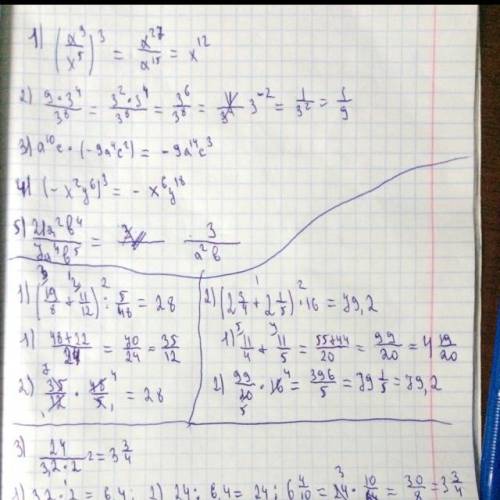 1) (x⁹/x⁵)³ = x²⁷/x¹⁵ = x¹²
2) 9·3⁴/3⁸ = 3²·3⁴/3⁸ = 3⁶/3⁸ = 3⁻² = 1/3² = 1/9
3) a¹⁰c · (-9a⁴c²) = -9a¹⁴c³
4) (-x²y⁶)³ = -x⁶y¹⁸
5) 21a²b⁴/7a⁴b⁵ = 3/a²b
1) (19/8 + 11/12) : 5/48 = 28
1) 48+22/24 = 70/24 = 35/12
2) 35/12 · 48/5 = 28
2) (2 3/4 + 2 1/5) · 16 = 79,2
1) 11/4 + 11/5 = 55+44/20 = 99/20 = 4 19/20
2) 99/20 · 16 = 396/5 = 79 1/5 = 79,2
3) 24/3,2·2 = 3 3/4
1) 3,2·2 = 6,4; 2) 24 : 6,4 = 24 : 6 4/10 = 24 · 10/64 = 30/8 = 3 3/4